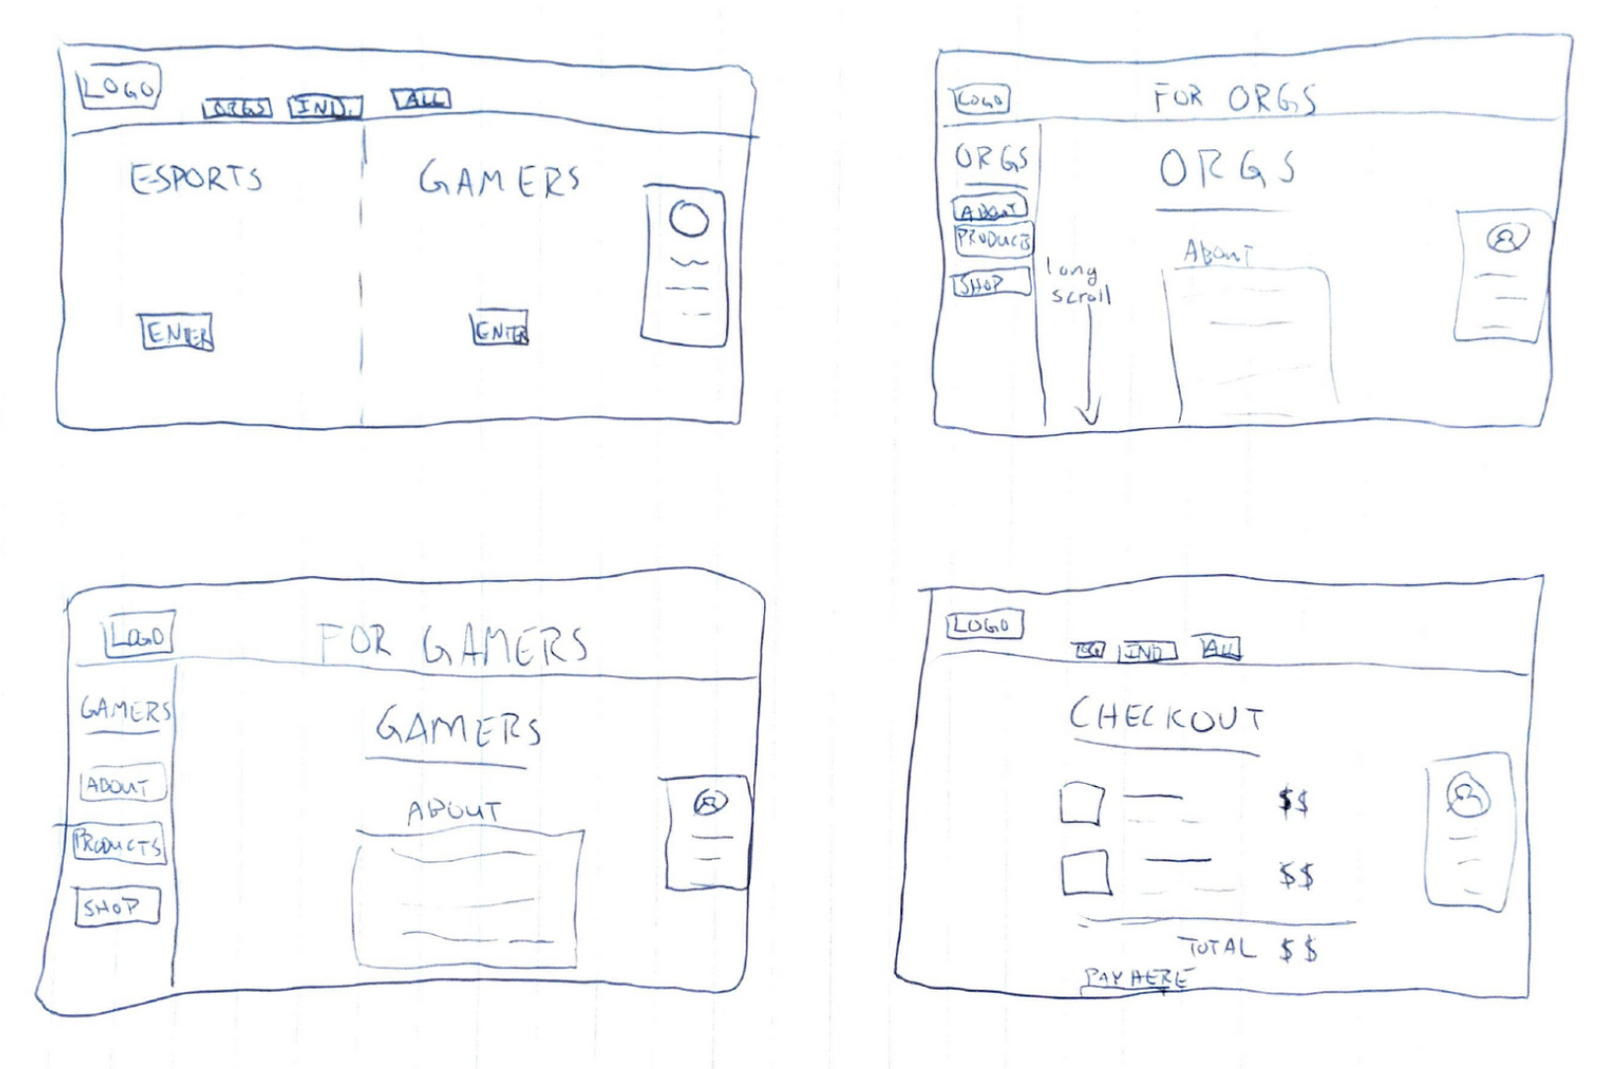 LOGO
ORGS IND. ALL
ESPORTS GAMERS
ENTER ENTER
LOGO FOR ORGS
ORGS
ABOUT
PRODUCTS
SHOP
ORGS
ABOUT
long
scroll
LOGO FOR GAMERS
GAMERS
ABOUT
PRODUCTS
SHOP
GAMERS
ABOUT
LOGO
IND ALL
CHECKOUT
$$
$$
TOTAL $$
PAY HERE